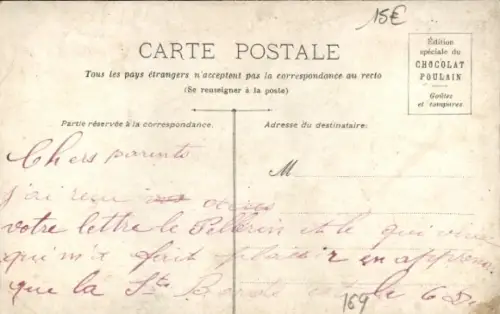 15€
CARTE POSTALE
Tous les pays étrangers n'acceptent pas la correspondance au recto
(Se renseigner à la poste)
Édition
spéciale du
CHOCOLAT
POULAIN
Goûtez
et comparez
Partie réservée à la correspondance.
Adresse du destinataire.
M
Chers parents
j'ai reçu
votre lettre le Pellerin et le qui
qui m'a fait plaisir en
que la Ste le 6
169